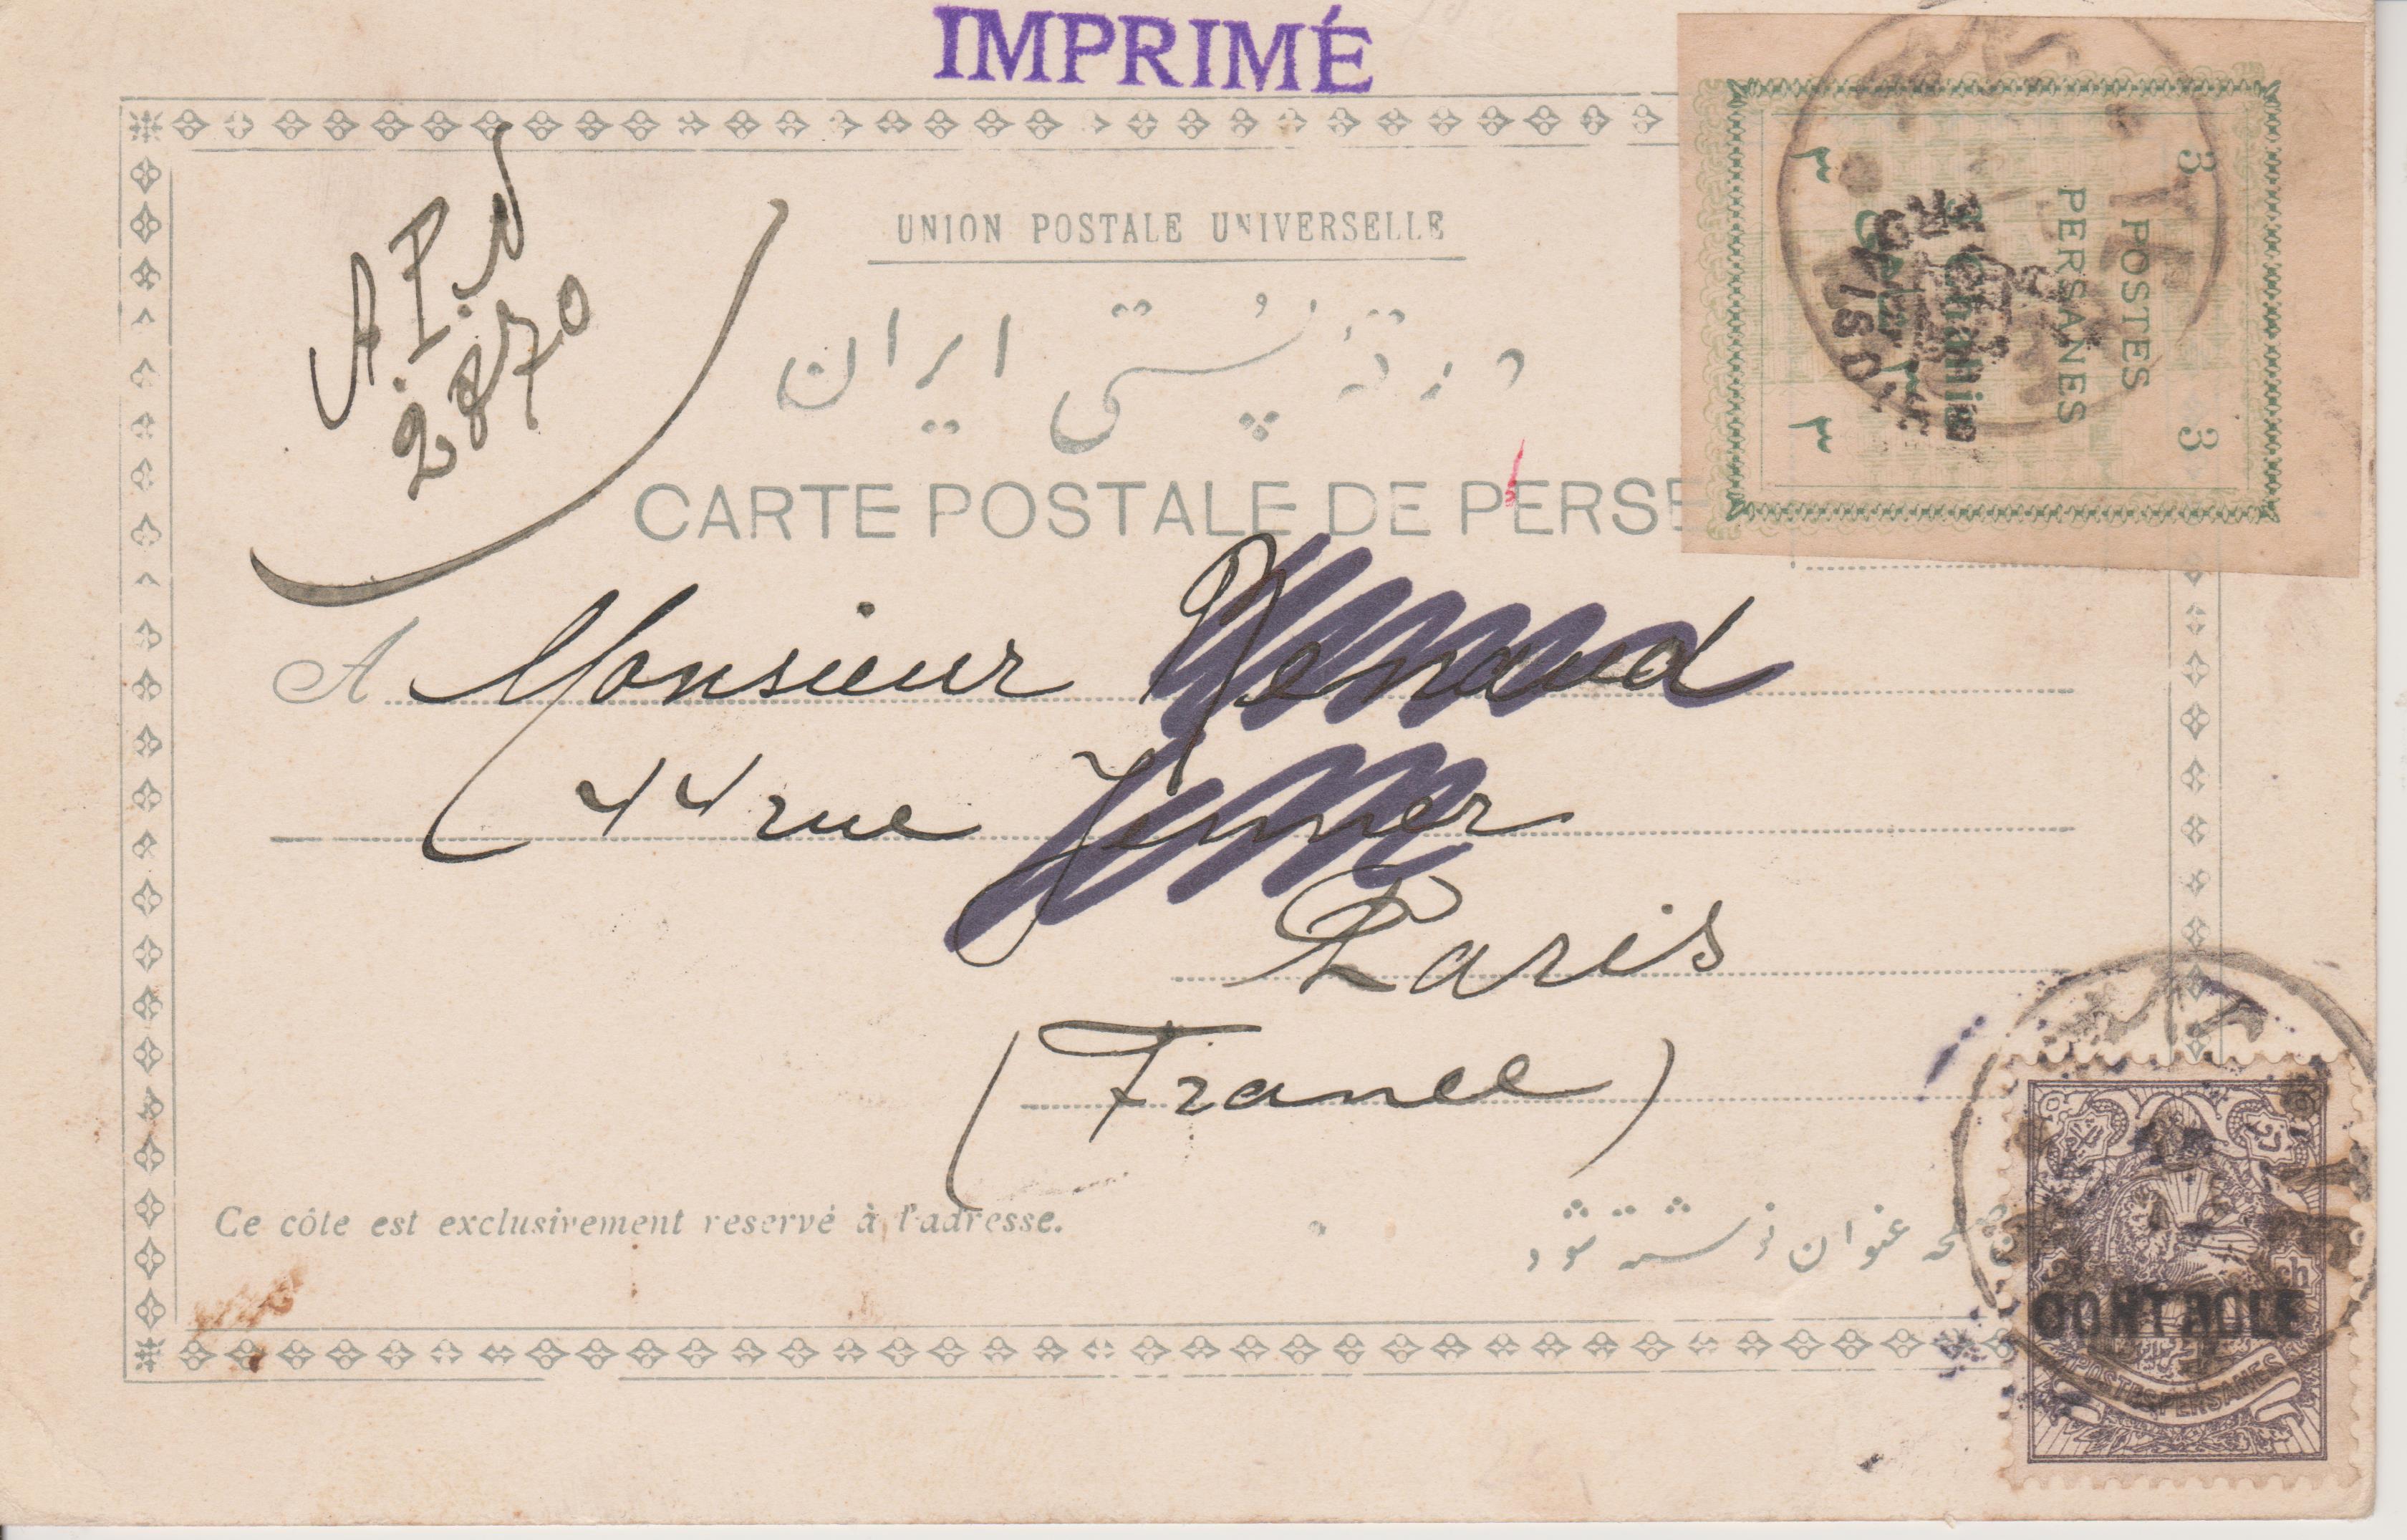 IMPRIMÉ
A.P.N
2870
UNION POSTALE UNIVERSELLE
ورقهٔ پُستی ایران
CARTE POSTALE DE PERSE
3 3
POSTES
PERSANES
۳ ۳
A Monsieur Renaud
44 rue Jenner
Paris
(France)
Ce côte est exclusivement reservé à l'adresse.
عنوان نوشته شود
ch
CONTROLE
POSTES PERSANES